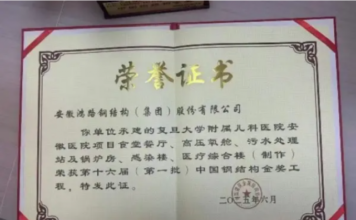 荣誉证书
安徽鸿路钢结构（集团）股份有限公司
你单位承建的复旦大学附属儿科医院安
徽医院项目食堂餐厅、高压氧舱、污水处理
站及锅炉房、感染楼、医疗综合楼（制作）
荣获第十六届（第一批）中国钢结构金奖工
程，特发此证。
二〇二五年六月